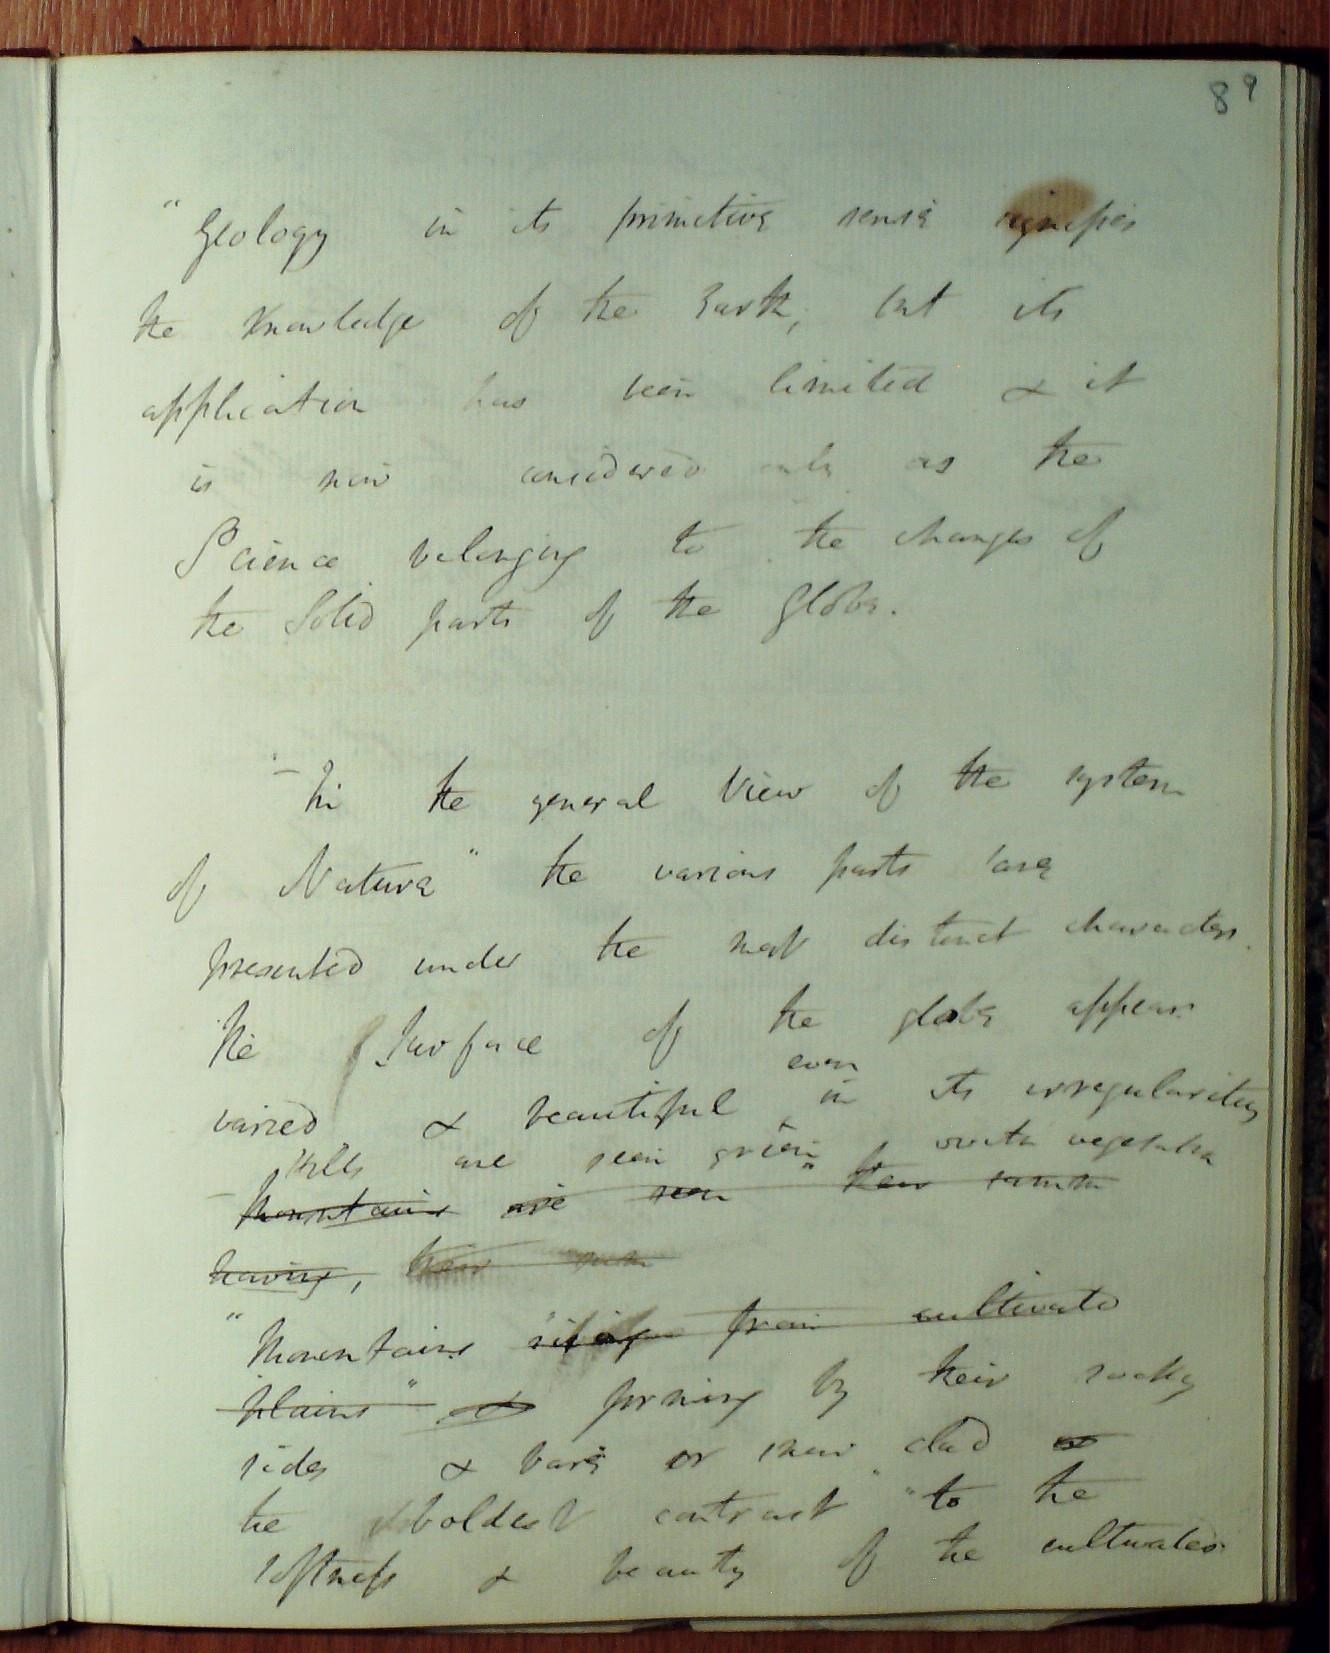 89
"Geology in its primitive sense signifies
the Knowledge of the Earth, but its
application has been limited & it
is now considered only as the
Science belonging to the changes of
the Solid parts of the Globe.
"– In the general View of the system
of Nature" the various parts are
presented under the most distinct characters.
The Surface of the globe appears
even
varied & beautiful in its irregularities
Hills are seen green with vegetation
– Mountains are seen their summits
having, their
"Mountains rising from cultivated
plains" & forming by their rocky
sides & bare or snow clad
the boldest contrast "to the
softness & beauty of the cultivated